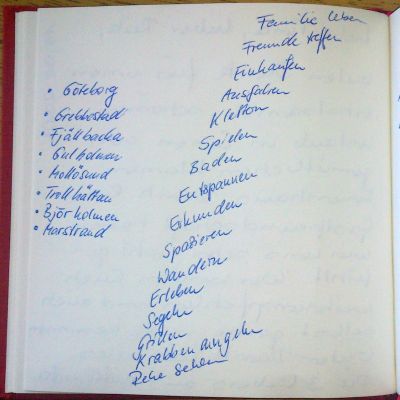 Familie leben
Freunde treffen
Einkaufen
Ausfahren
Klettern
Spielen
Baden
Entspannen
Erkunden
Spazieren
Wandern
Erleben
Segeln
Grillen
Krabben angeln
Rehe sehen
• Göteborg
• Grebbestad
• Fjällbacka
• Gullholmen
• Mollösund
• Trollhättan
• Björholmen
• Marstrand